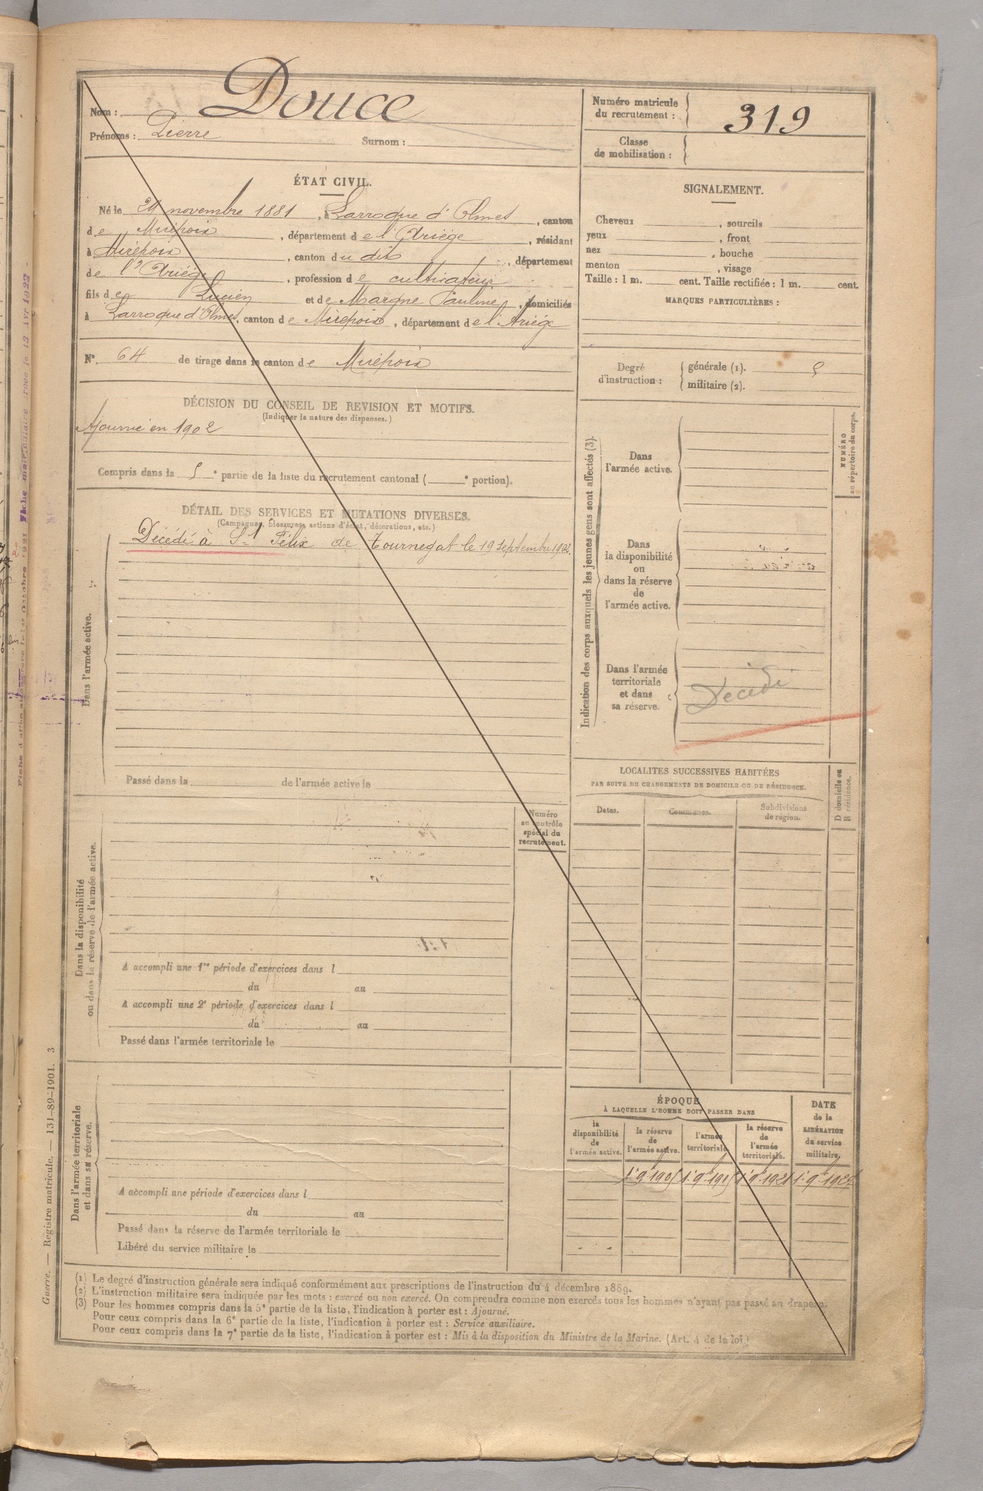 Nom : Douce
Prénoms : Pierre Surnom :
Numéro matricule
du recrutement : 319
Classe
de mobilisation :
ÉTAT CIVIL.
Né le 24 novembre 1881, à Larroque d'Olmes, canton
de Mirepoix, département de l'Ariège, résidant
à Mirepoix, canton du dit, département
de l'Ariège, profession de cultivateur
fils de Lucien et de Margne Pauline, domiciliés
à Larroque d'Olmes, canton de Mirepoix, département de l'Ariège
N° 64 de tirage dans le canton de Mirepoix
SIGNALEMENT.
Cheveux , sourcils
yeux , front
nez , bouche
menton , visage
Taille : 1 m. cent. Taille rectifiée : 1 m. cent.
MARQUES PARTICULIÈRES :
Degré
d'instruction :
générale (1).
militaire (2).
DÉCISION DU CONSEIL DE REVISION ET MOTIFS.
(Indiquer la nature des dispenses.)
Ajourné en 1902
Compris dans la 5e partie de la liste du recrutement cantonal ( e portion).
DÉTAIL DES SERVICES ET MUTATIONS DIVERSES.
(Campagnes, blessures, actions d'éclat, décorations, etc.)
Décédé à St Félix de Tournegat le 19 Septembre
Dans l'armée active.
Passé dans la de l'armée active le
Indication des corps auxquels les jeunes gens sont affectés (3).
NUMÉRO
au répertoire du corps.
Dans
l'armée active.
Dans
la disponibilité
ou
dans la réserve
de
l'armée active.
Dans l'armée
territoriale
et dans
sa réserve.
Décédé
LOCALITÉS SUCCESSIVES HABITÉES
PAR SUITE DE CHANGEMENTS DE DOMICILE OU DE RÉSIDENCE.
Dates.
Communes.
Subdivisions
de région.
D domicile ou
R résidence.
Numéro
au contrôle
spécial du
recrutement.
Dans la disponibilité
ou dans la réserve de l'armée active.
A accompli une 1re période d'exercices dans l
du au
A accompli une 2e période d'exercices dans l
du au
Passé dans l'armée territoriale le
Dans l'armée territoriale
et dans sa réserve.
A accompli une période d'exercices dans l
du au
Passé dans la réserve de l'armée territoriale le
Libéré du service militaire le
ÉPOQUE
À LAQUELLE L'HOMME DOIT PASSER DANS
la
disponibilité
de
l'armée active.
la réserve
de
l'armée active.
l'armée
territoriale.
la réserve
de
l'armée
territoriale.
DATE
de la
LIBÉRATION
du service
militaire.
(1) Le degré d'instruction générale sera indiqué conformément aux prescriptions de l'instruction du 4 décembre 1889.
(2) L'instruction militaire sera indiquée par les mots : exercé ou non exercé. On comprendra comme non exercés tous les hommes n'ayant pas passé au drapeau.
(3) Pour les hommes compris dans la 5e partie de la liste, l'indication à porter est : Ajourné.
Pour ceux compris dans la 6e partie de la liste, l'indication à porter est : Service auxiliaire.
Pour ceux compris dans la 7e partie de la liste, l'indication à porter est : Mis à la disposition du Ministre de la Marine. (Art. 4 de la loi)
Guerre. — Registre matricule. — 131-89-1901. 3